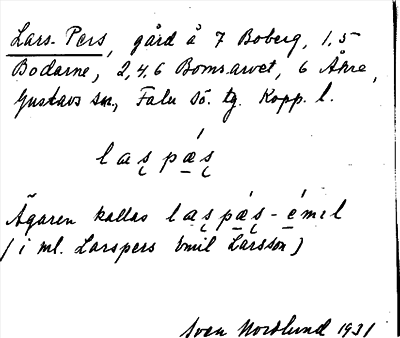 Lars-Pers, gård å 7 Boberg, 1, 5
Bodarne, 2, 4, 6 Bomsarvet, 6 Åkre,
Gustavs sn, Falu sö. tg. Kopp. l.
laspás
Ägaren kallas laspás-émil
(i ml. Larspers Emil Larsson)
Sven Nordlund 1931